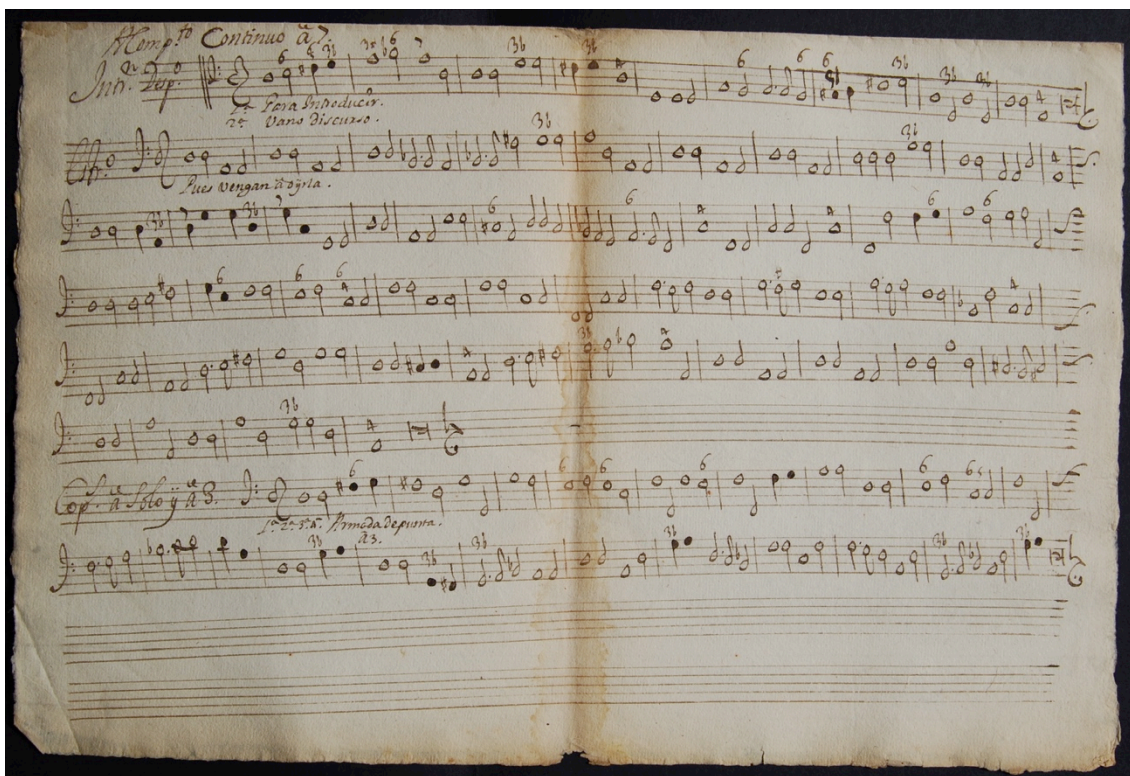 Acomp.to Continuo â 7.
Intr.on Desp.o
1.a Para Introducir.
2.a Vano discurso.
Est.o
Pues vengan â oyrla.
Cop.s â Solo y â 3.
1.a 2.a 3.a 4.a Armada de punta.
â 3.